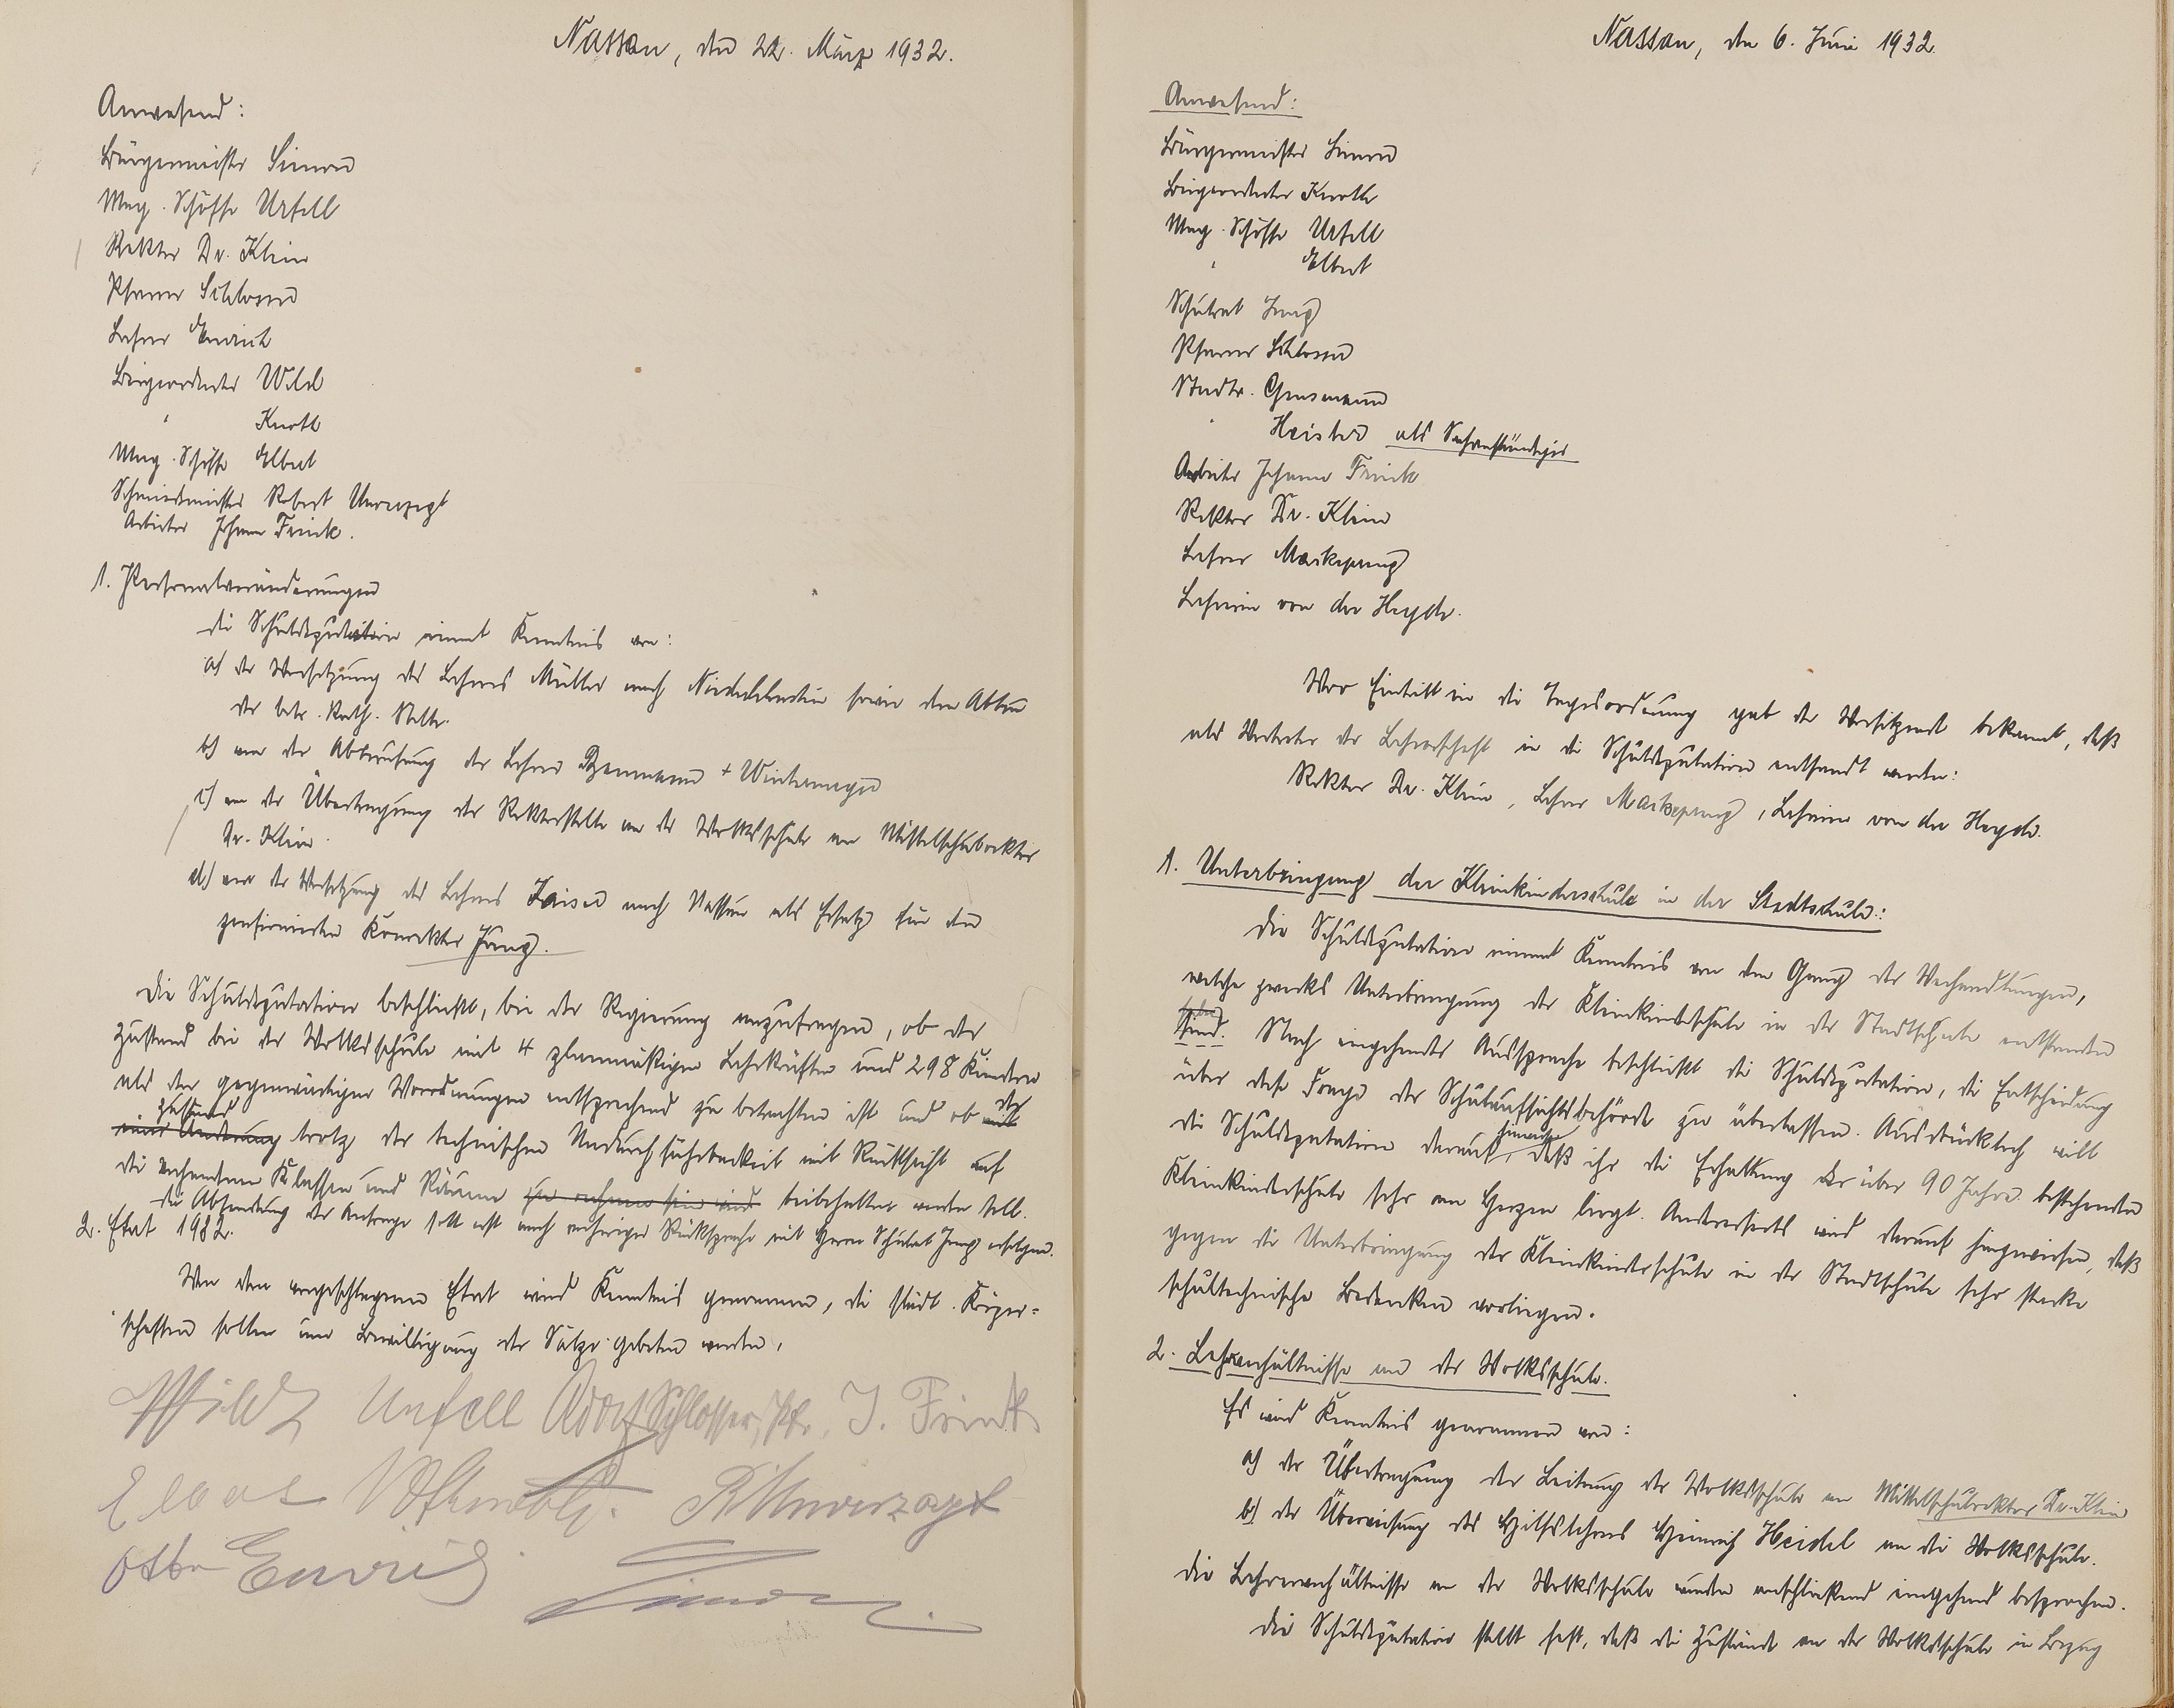 Nassau, den 22. März 1932.
Anwesend:
Bürgermeister Simon
Mag. Schöffe Unfell
Rektor Dr. Klein
Pfarrer Schlosser
Lehrer Emrich
Bürgerdeputierter Wild
" Knoth
Mag. Schöffe Elbert
Schmiedemeister Robert Unverzagt
Arbeiter Johann Frink.
1. Personalveränderungen
Die Schuldeputation nimmt Kenntnis von:
a) der Versetzung des Lehrers Müller nach Niederlahnstein sowie dem Abbau
der betr. Kath. Stelle.
b) von der Abberufung der Lehrer + Wintermeyer
c) von der Übertragung der Rektorstelle an der Volksschule an Mittelschulrektor
Dr. Klein.
d.) von der Versetzung des Lehrers Kaiser nach Nassau als Ersatz für den
pensionierten Konrektor Jung.
Die Schuldeputation beschließt, bei der Regierung anzufragen, ob der
Zustand bei der Volksschule mit 4 planmäßigen Lehrkräften und 298 Kindern
als den gegenwärtigen Verordnungen entsprechend zu betrachten ist und ob der
Zustand
eine Änderung trotz der technischen Undurchführbarkeit mit Rücksicht auf
die vorhandenen Klassen und Räume beibehalten werden soll.
Die Absendung der Anfrage soll erst nach vorheriger Rücksprache mit Herrn Schulrat Jung erfolgen.
2. Etat 1932.
Von dem vorgeschlagenen Etat wird Kenntnis genommen, die städt. Körper=
schaften sollen um Bewilligung der Sätze gebeten werden.
Wild Unfell Adolf Schlosser, Pfr. J. Frink
Elbert R Unverzagt
Otto Emrich Simon
Nassau, den 6. Juni 1932
Anwesend:
Bürgermeister Simon
Bürgerdeputierter Knoth
Mag. Schöffe Unfell
" Elbert
Schulrat Jung
Pfarrer Schlosser
Stadtv. Gensmann
" Heister als Sachverständiger
Arbeiter Johann Frink
Rektor Dr. Klein
Lehrer Markgraf
Lehrerin von der Heyde.
Vor Eintritt in die Tagesordnung gab der Vorsitzende bekannt, daß
als Vertreter der Lehrerschaft in die Schuldeputation entsandt werden:
Rektor Dr. Klein, Lehrer, Lehrerin von der Heyde.
1. Unterbringung der Kleinkinderschule in der Stadtschule:
Die Schuldeputation nimmt Kenntnis von dem Gang der Verhandlungen,
welche zwecks Unterbringung der Kleinkinderschule in der Stadtschule entstanden
sind. Nach eingehender Aussprache beschließt die Schuldeputation, die Entscheidung
über diese Frage der Schulaufsichtsbehörde zu überlassen. Ausdrücklich will
die Schuldeputation darauf hinweisen, daß ihr die Erhaltung der über 90 Jahre bestehenden
Kleinkinderschule sehr am Herzen liegt. Andererseits wird darauf hingewiesen, daß
gegen die Unterbringung der Kleinkinderschule in der Stadtschule sehr starke
schultechnische Bedenken vorliegen.
2. Lehrverhältnisse an der Volksschule.
Es wird Kenntnis genommen von:
a) der Übertragung der Leitung der Volksschule an Mittelschulrektor Dr. Klein
b) der Überweisung des Hilfslehrers Heinrich Heidel an die Volksschule.
Die Lehrerverhältnisse an der Volksschule wurden anschließend eingehend besprochen.
Die Schuldeputation stellt fest, daß die Zustände an der Volksschule in Bezug